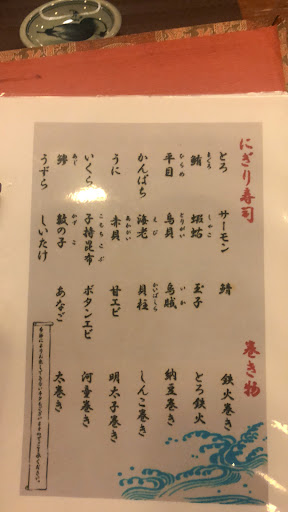 にぎり寿司 巻き物
とろ サーモン 鯖 鉄火巻き
鮪 蝦蛄 玉子 とろ鉄火
平目 鳥貝 烏賊 納豆巻き
かんぱち 海老 貝柱 しんこ巻き
うに 赤貝 甘エビ 明太子巻き
いくら 子持昆布 ボタンエビ 河童巻き
鯵 数の子 あなご 太巻き
うずら しいたけ